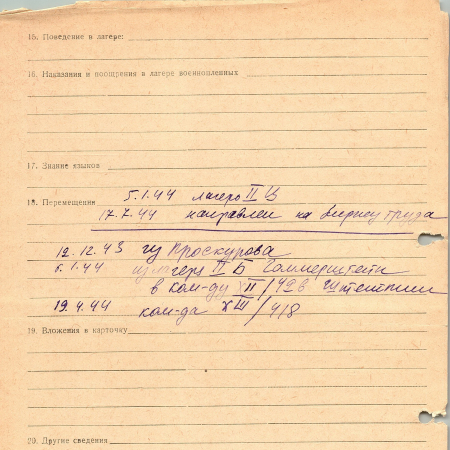 15. Поведение в лагере:
16. Наказания и поощрения в лагере военнопленных
17. Знание языков
18. Перемещения 5.1.44 лагерь II Ц
17.7.44 направлен на биржу труда
12.12.43 из Проскурова
5.1.44 из лагеря II Б Гаммерштейн
в ком-ду XII/ в
19.4.44 ком-да XIII/418
19. Вложения в карточку
20. Другие сведения